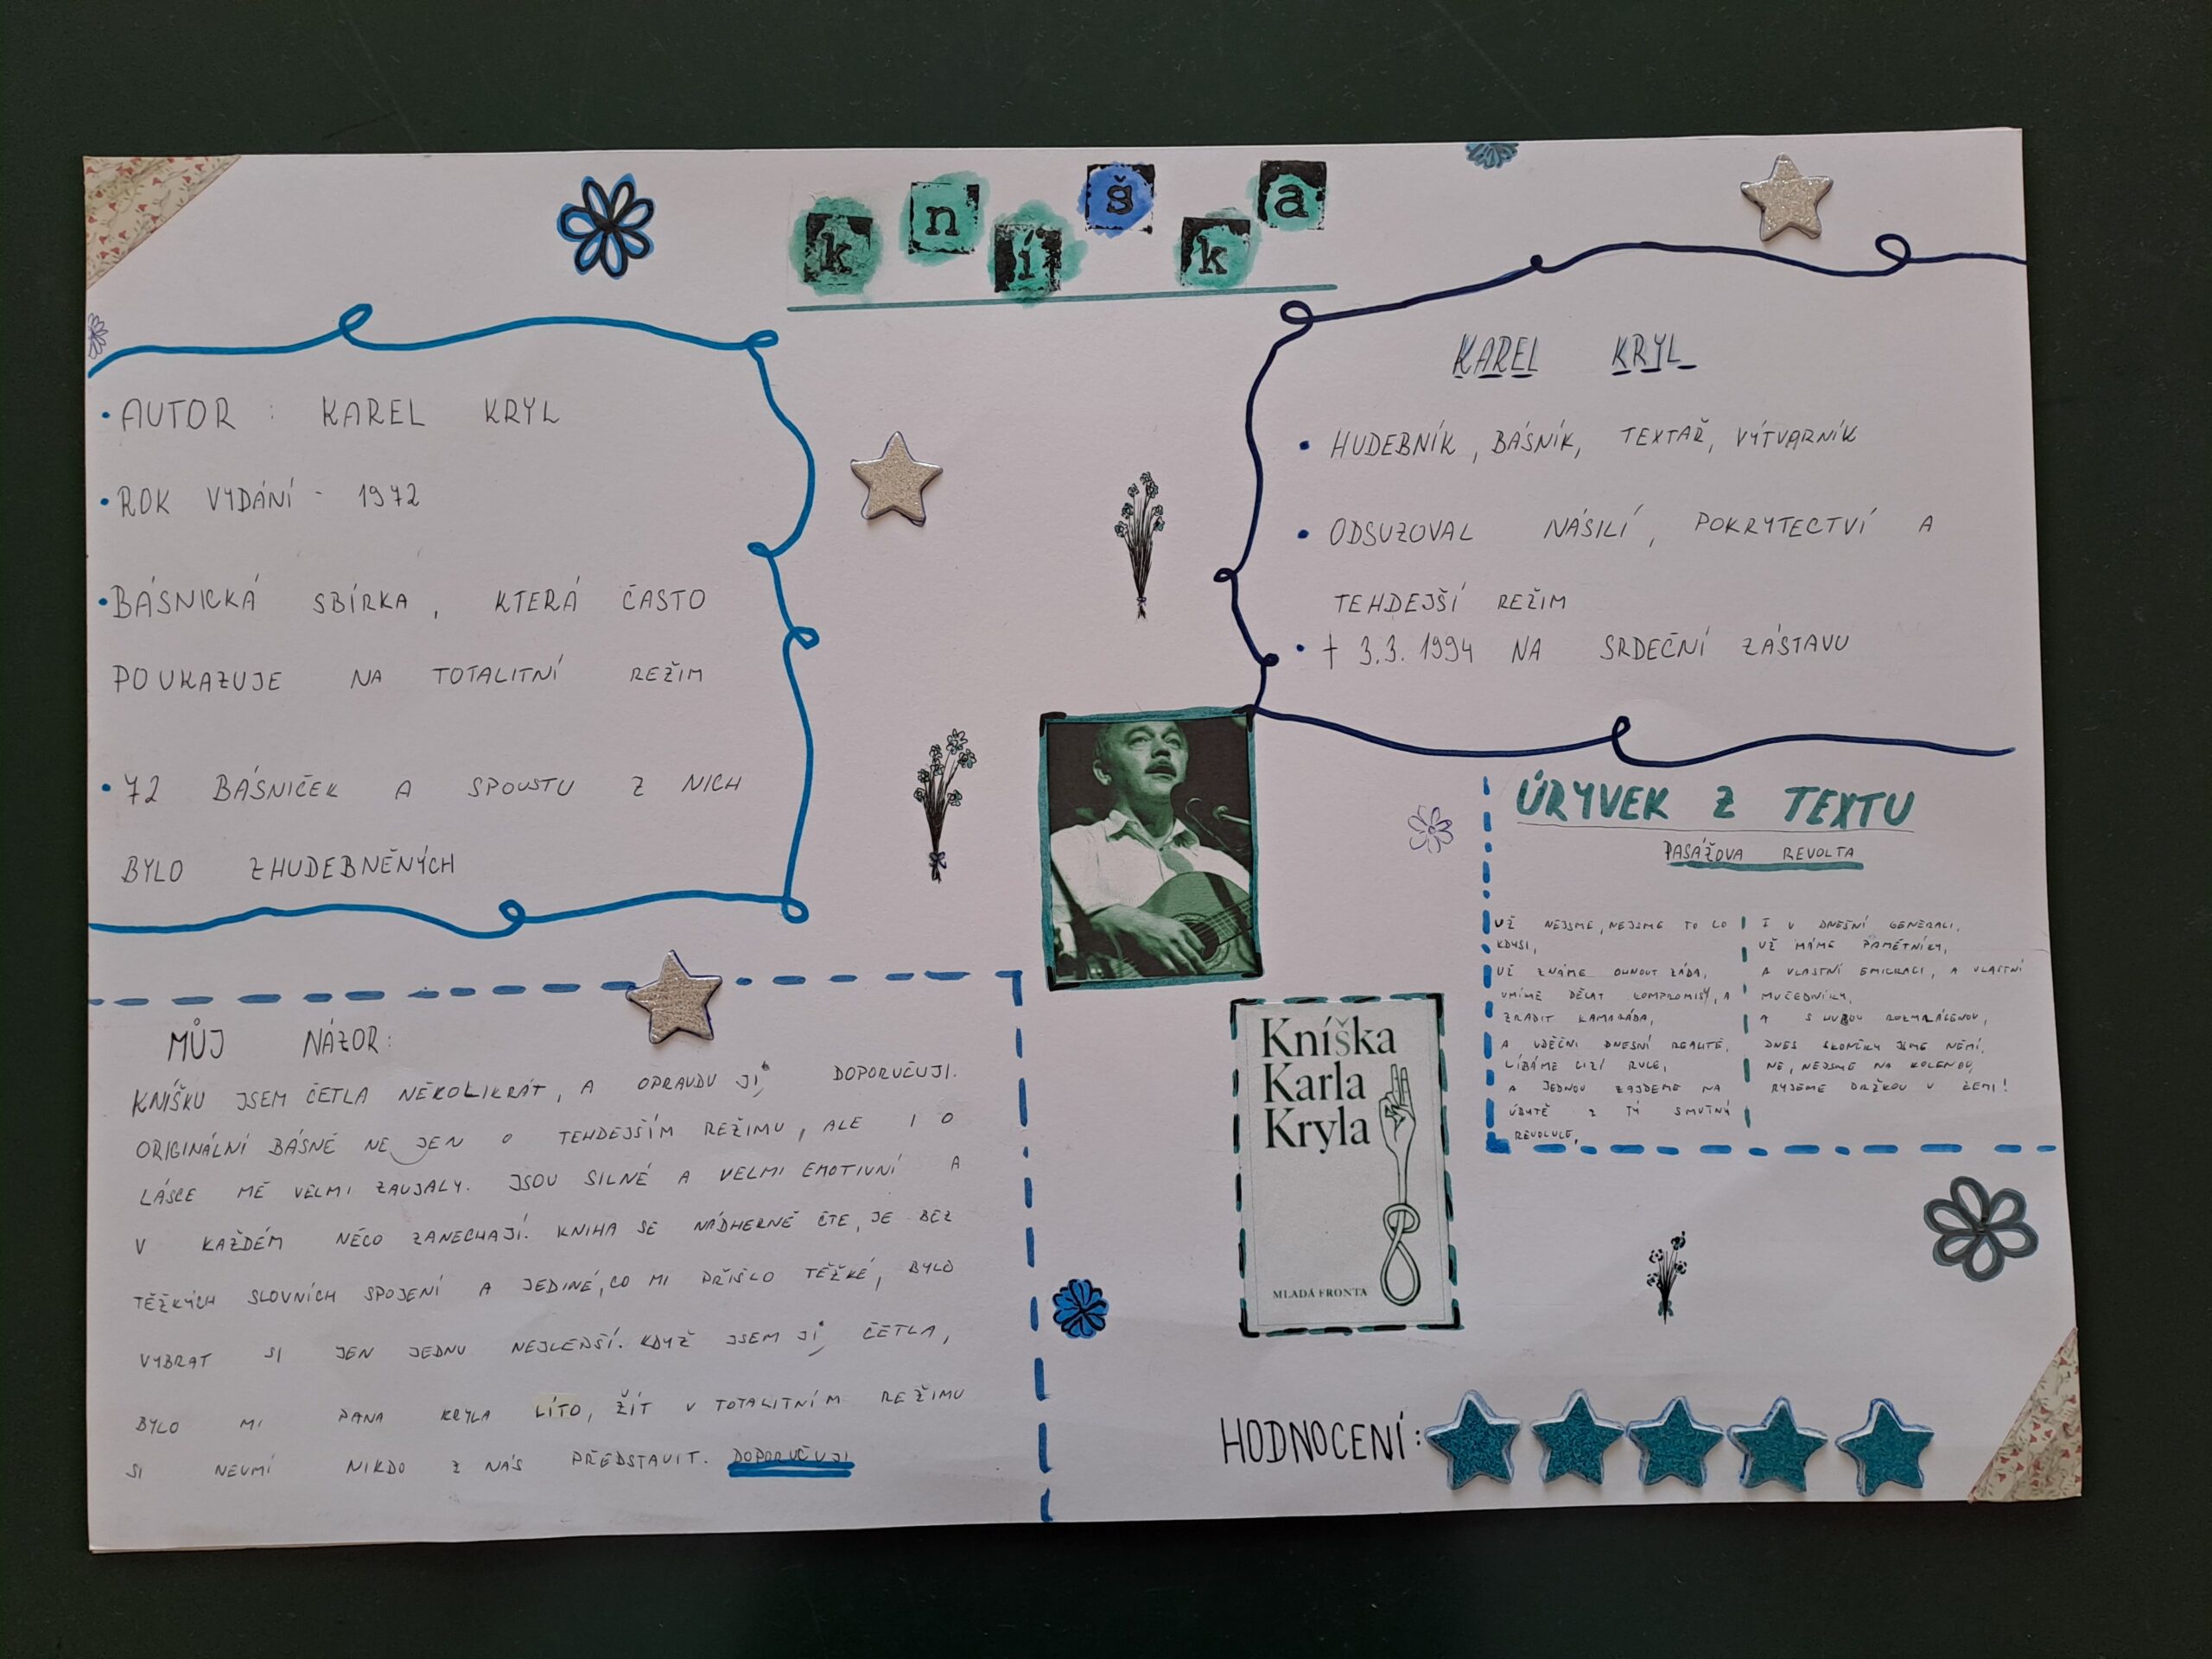 kníška
• AUTOR : KAREL KRYL
• ROK VYDÁNÍ - 1972
• BÁSNICKÁ SBÍRKA, KTERÁ ČASTO
POUKAZUJE NA TOTALITNÍ REŽIM
• 72 BÁSNIČEK A SPOUSTU Z NICH
BYLO ZHUDEBNĚNÝCH
KAREL KRYL
• HUDEBNÍK, BÁSNÍK, TEXTAŘ, VÝTVARNÍK
• ODSUZOVAL NÁSILÍ, POKRYTECTVÍ A
TEHDEJŠÍ REŽIM
• † 3.3. 1994 NA SRDEČNÍ ZÁSTAVU
MŮJ NÁZOR:
KNÍŠKU JSEM ČETLA NĚKOLIKRÁT, A OPRAVDU JI DOPORUČUJI.
ORIGINÁLNÍ BÁSNĚ NE JEN O TEHDEJŠÍM REŽIMU, ALE I O
LÁSCE MĚ VELMI ZAUJALY. JSOU SILNÉ A VELMI EMOTIVNÍ A
V KAŽDÉM NĚCO ZANECHAJÍ. KNIHA SE NÁDHERNĚ ČTE, JE BEZ
TĚŽKÝCH SLOVNÍCH SPOJENÍ A JEDINÉ, CO MI PŘIŠLO TĚŽKÉ, BYLO
VYBRAT SI JEN JEDNU NEJLEPŠÍ. KDYŽ JSEM JI ČETLA,
BYLO MI PANA KRYLA LÍTO, ŽÍT V TOTALITNÍM REŽIMU
SI NEUMÍ NIKDO Z NÁS PŘEDSTAVIT. DOPORUČUJI
Kníška
Karla
Kryla
MLADÁ FRONTA
ÚRYVEK Z TEXTU
PASÁŽOVA REVOLTA
UŽ NEJSME, NEJSME TO CO
KDYSI,
UŽ ZNÁME OHNOUT ZÁDA,
UMÍME DĚLAT KOMPROMISY, A
ZRADIT KAMARÁDA,
A VDĚČNI DNEŠNÍ REALITĚ,
LÍBÁME CIZÍ RUCE,
A JEDNOU ZAJDEME NA
ÚBYTĚ Z TÝ SMUTNÝ
REVOLUCE,
I V DNEŠNÍ GENERACI,
UŽ MÁME PAMĚTNÍKY,
A VLASTNÍ EMIGRACI, A VLASTNÍ
MUČEDNÍKY,
A S HUBOU ROZMLÁCENOU,
DNES SKONČILY JSME NĚMÍ,
NE, NEJSME NA KOLENOU,
RYJEME DRŽKOU V ZEMI!
HODNOCENÍ: